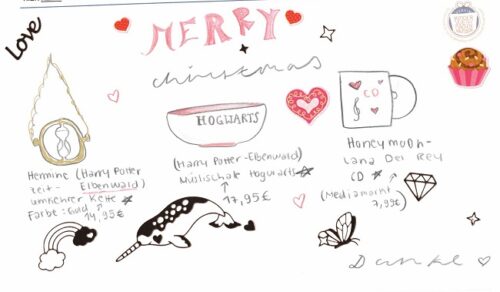 Love
MERRY
christmas
CD
HOGWARTS
Hermine (Harry Potter
Zeit- Elbenwald)
umkehrer Kette
Farbe: Gold
14,95€
(Harry Potter-Elbenwald)
Müslischale Hogwarts
17,95€
Honeymoon-
Lana Del Rey
CD
(Mediamarkt
7,99€)
Danke